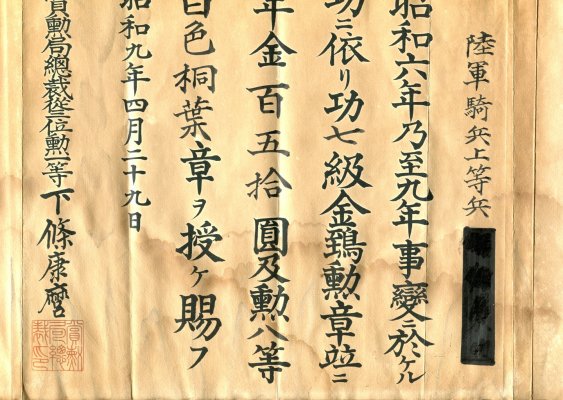 陸軍騎兵上等兵
昭和六年乃至九年事變ニ於ケル
功ニ依リ功七級金鵄勲章竝ニ
年金百五拾圓及勲八等
白色桐葉章ヲ授ケ賜フ
昭和九年四月二十九日
賞勲局總裁從三位勲一等下條康麿